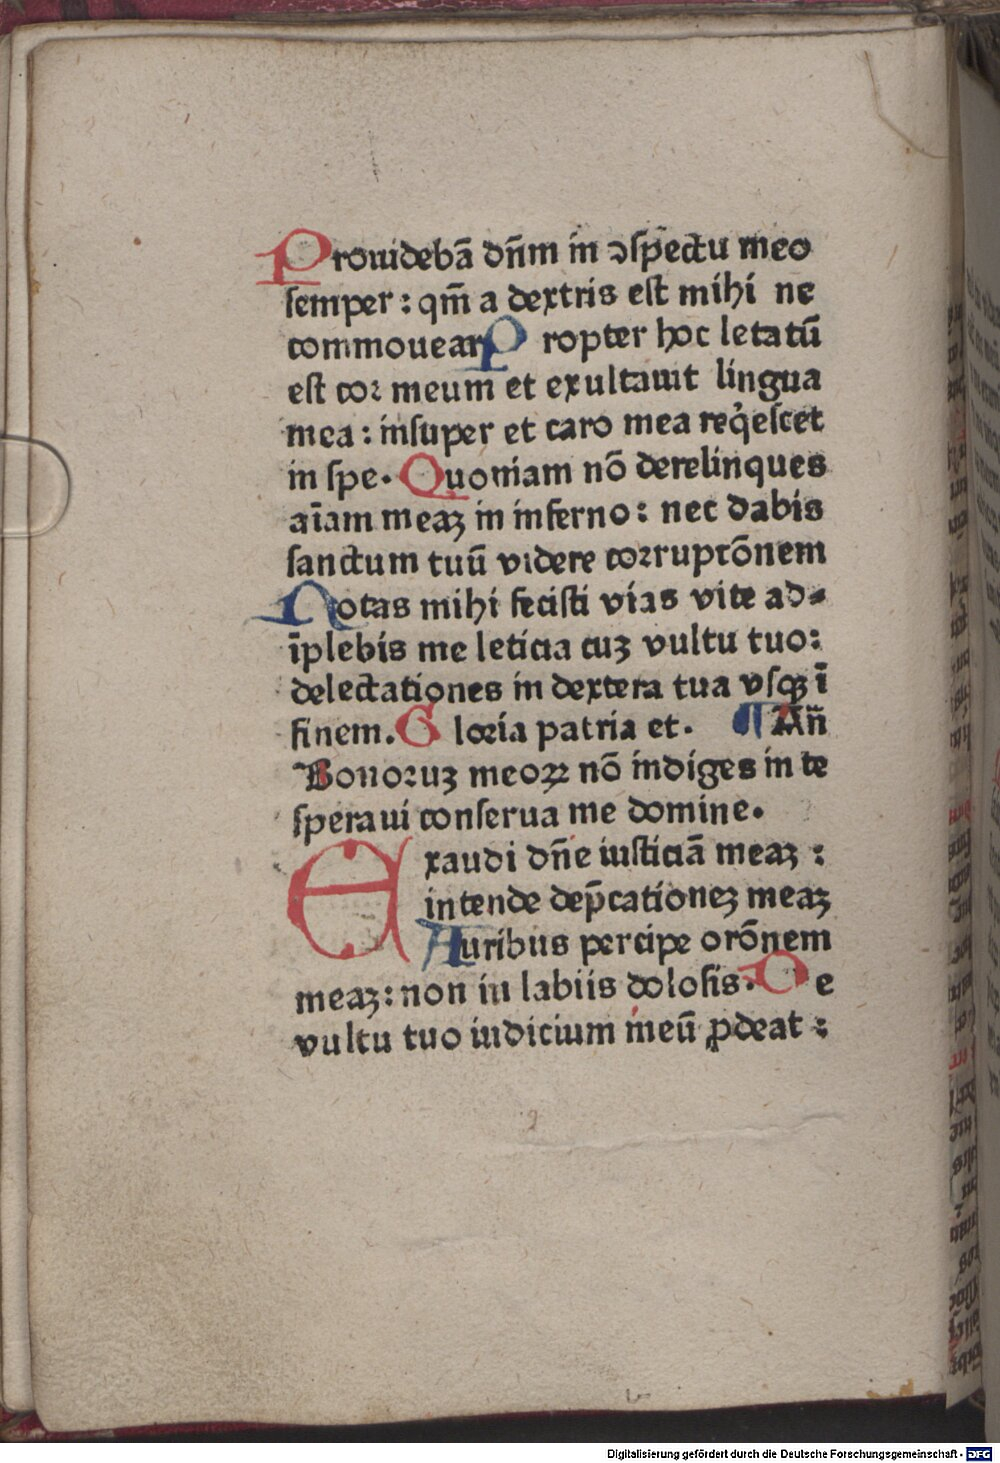 Prouidebā dn̄m in ↄspectu meo
semper : qm̄ a dextris est mihi ne
commouear Propter hoc letatū
est coꝛ meum et exultauit lingua
mea : insuper et caro mea reqͥescet
in spe. Quoniam nō derelinques
aīam meaꝫ in inferno : nec dabis
sanctum tuū videre coꝛruptōnem
Notas mihi fecisti vias vite ad⸗
īplebis me leticia cuꝫ vultu tuo :
delectationes in dextera tua vsqꝫ ī
finem. Gloria patria et. ¶ An̄
Bonoꝛuꝫ meoꝝ nō indiges in te
speraui conserua me domine.
Exaudi dn̄e iusticiā meaꝫ :
intende dep̄cationeꝫ meaꝫ
Auribus percipe orōnem
meaꝫ : non in labiis dolosis. De
vultu tuo iudicium meū ꝓdeat :
Digitalisierung gefördert durch die Deutsche Forschungsgemeinschaft - DFG